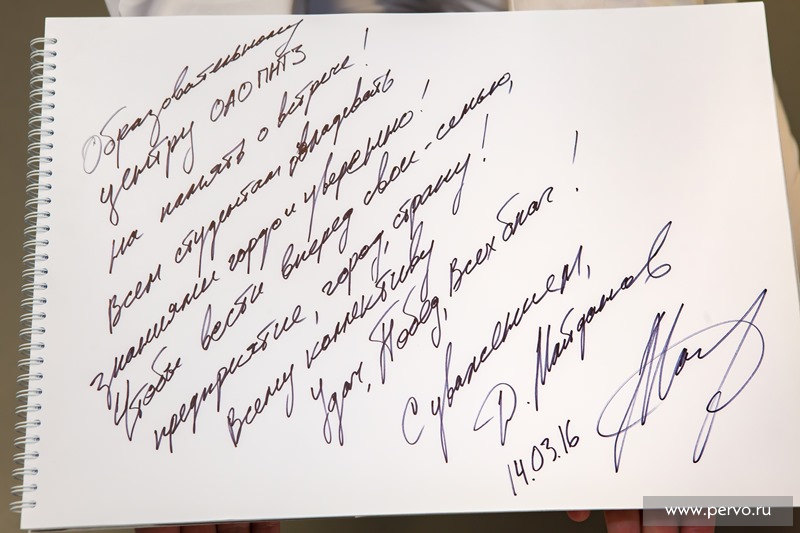 Образовательному
центру ОАО ПНТЗ
на память о встрече!
Всем студентам овладевать
знаниями гордо и уверенно!
Чтобы вести вперед свои - семью,
предприятие, город, страну!
Всему коллективу
Удач, Побед, Всех благ!
С уважением,
Д. Майданов
14.03.16
www.pervo.ru